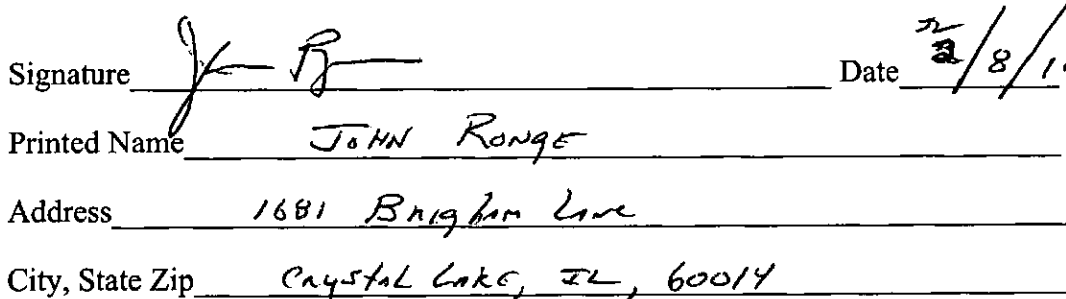 Signature Date /8/1
Printed Name JOHN RONGE
Address 1681 Brigham Lane
City, State Zip Crystal Lake, IL, 60014